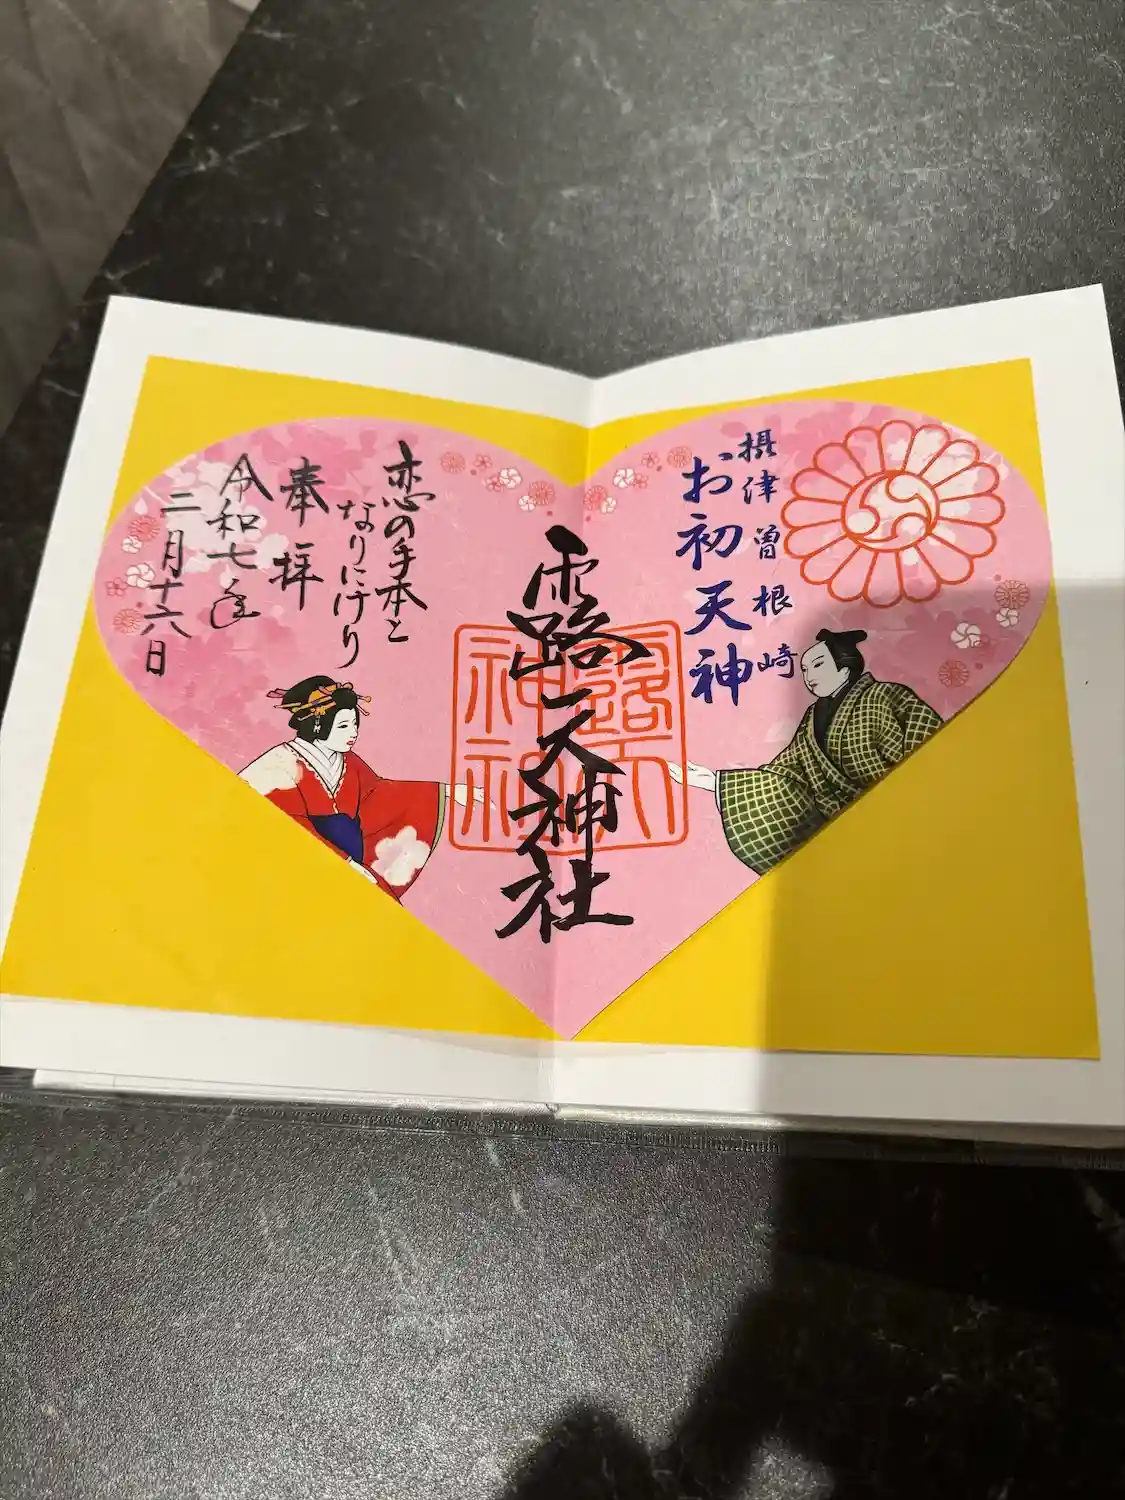 摂津 曽根崎
お初天神
露天神社
露天
神社
恋の手本と
なりにけり
奉拝
令和七年
二月十六日